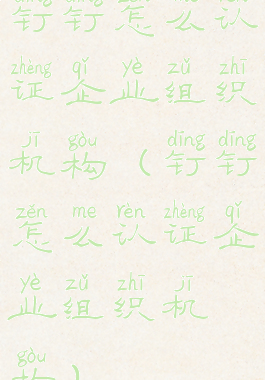 dīng dīng zěn me rèn
钉钉怎么认
zhèng qǐ yè zǔ zhī
证企业组织
jī gòu dīng dīng
机构（钉钉
zěn me rèn zhèng qǐ
怎么认证企
yè zǔ zhī jī
业组织机
gòu
构）